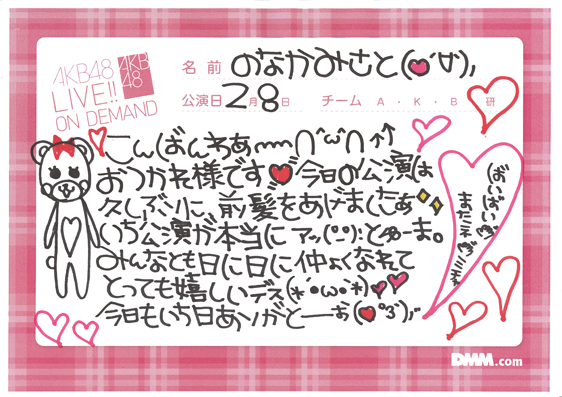 AKB48
LIVE!!
ON DEMAND
AKB
48
名前 のなかみさと(♥´∀`),,
公演日 2月8日 チーム A・K・B・研
こんばんわあ〜〜∩^ω^∩↑↑
おつかれ様です♥今日の公演は
久しぶりに、前髪をあげましたあ
いち公演が本当に アッ(°_°):とゆーま。
みんなとも日に日に仲よくなれて
とっても嬉しいデス(*´•ω•`*)♥♥
今日もいち日ありがとーお(♥°3°),,
ばいばい
またネ
DMM.com